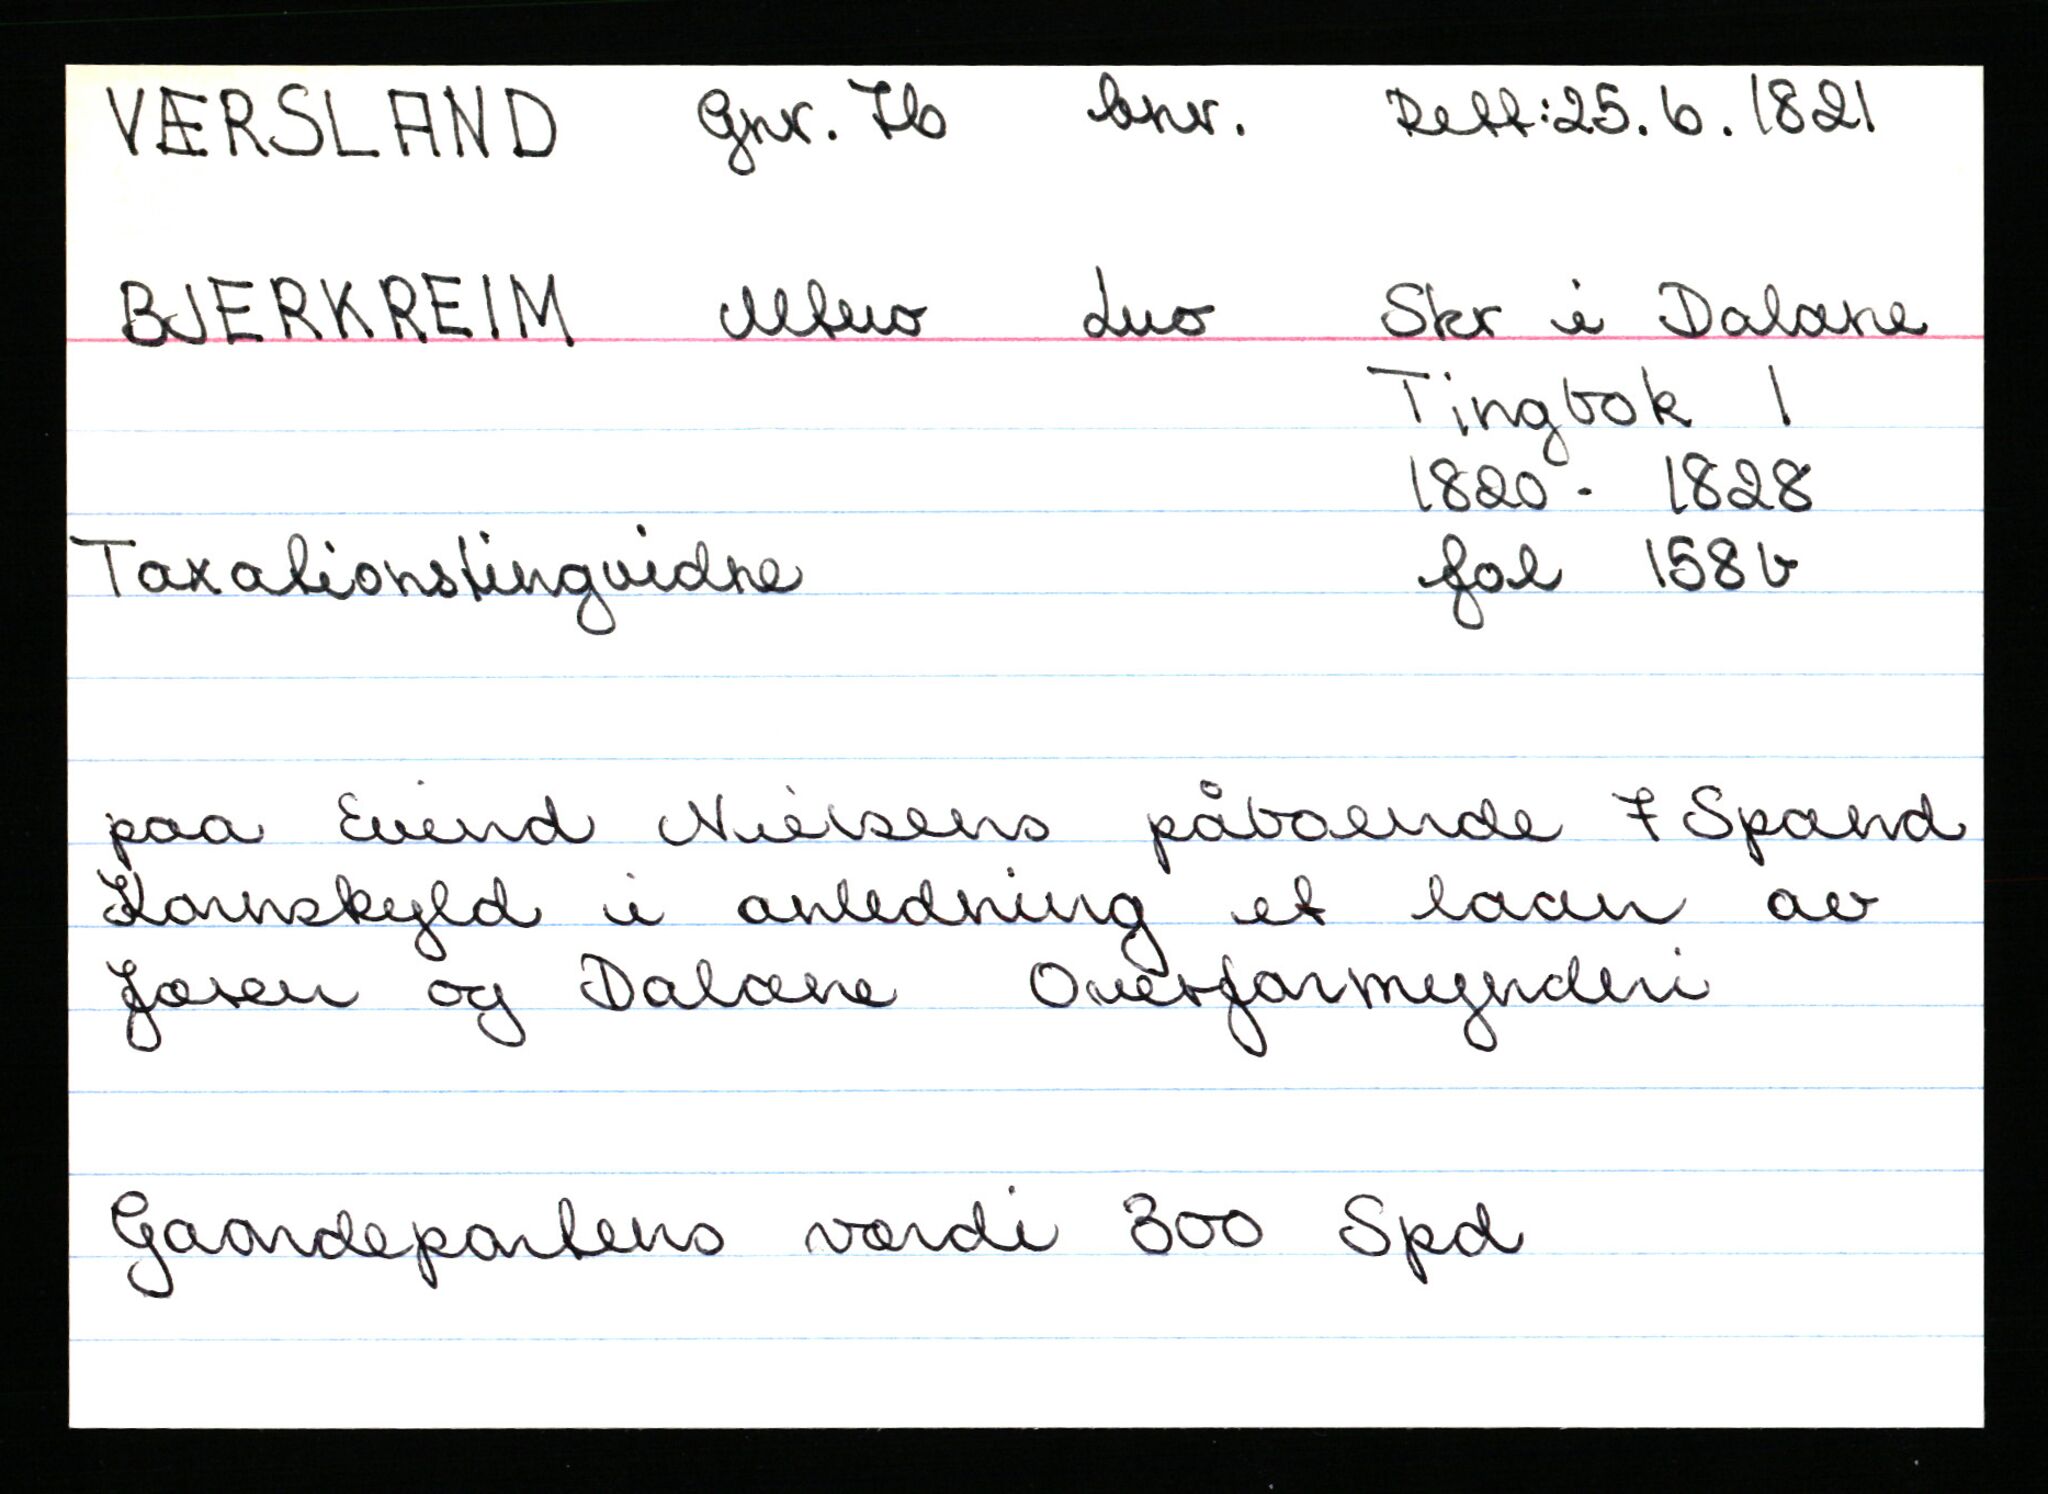 VÆRSLAND Gnr. 76 bnr. Rett: 25.6.1821
BJERKREIM Mtno Lno Skr i Dalane
Tingbok 1
1820 - 1828
fol 158b
Taxationstingvidne
paa Eivind Nielsens påboende 7 Spand
Kornskyld i anledning et laan av
Jæren og Dalane Overformynderi
Gaardepartens værdi 300 Spd